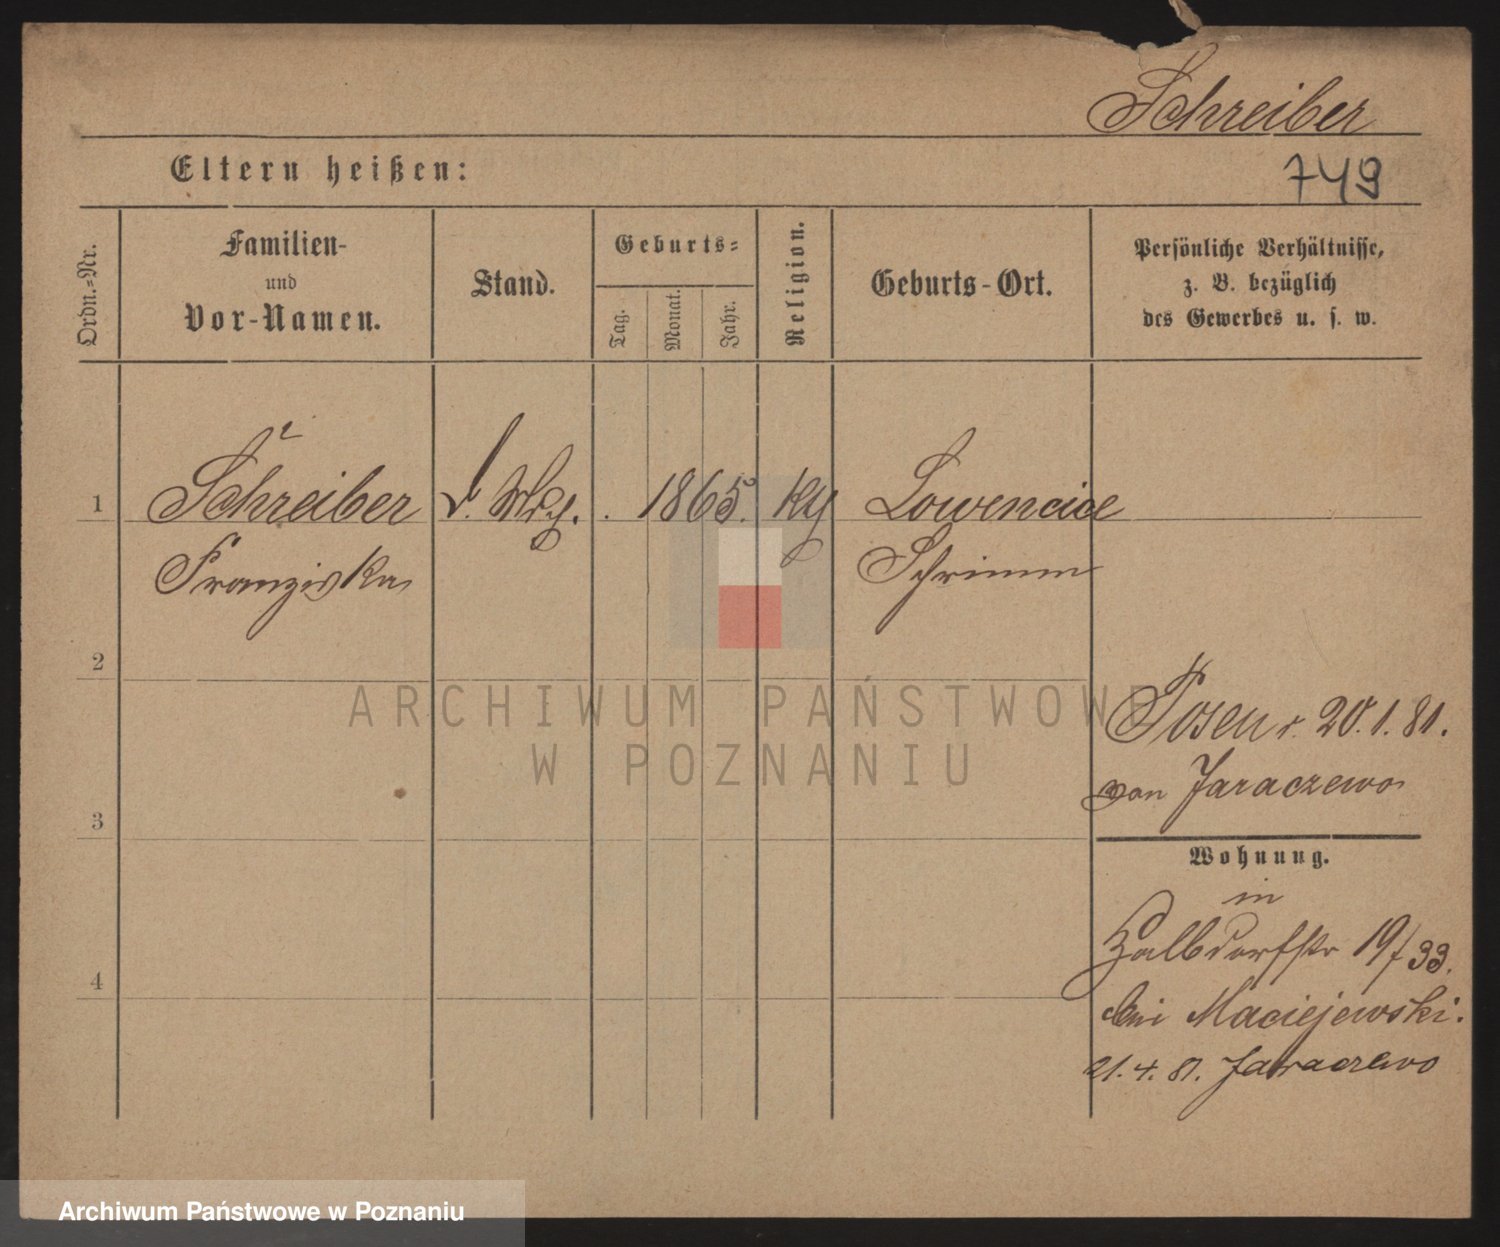 Schreiber
749
Eltern heißen:
Ordn.-Nr.
Familien-
und
Vor-Namen.
Stand.
Geburts-
Tag.
Monat.
Jahr.
Religion.
Geburts-Ort.
Persönliche Verhältnisse,
z. B. bezüglich
des Gewerbes u. s. w.
1 Schreiber 1865. Lowencice
Franziska Schrimm
2
3
4
Posen 20.1.81.
von Jaraczewo
Wohnung.
in
Halbdorfstr 19/33.
bei Maciejewski.
21.4.81. Jaraczewo
ARCHIWUM PAŃSTWOWE
W POZNANIU
Archiwum Państwowe w Poznaniu